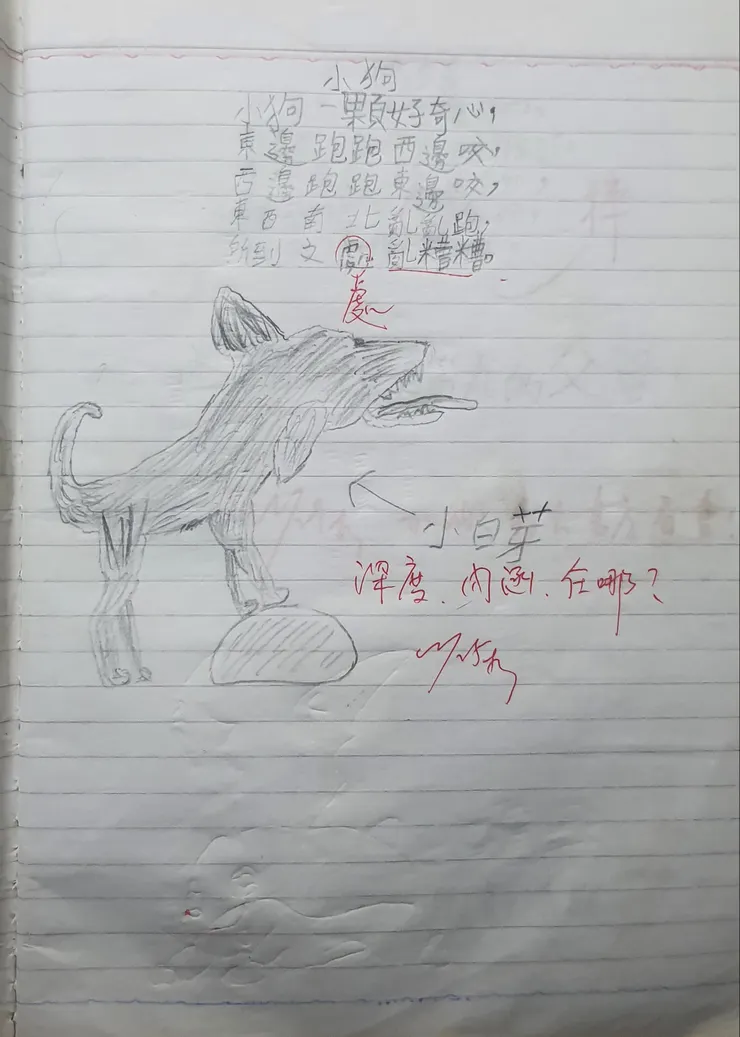 小狗
小狗一顆好奇心,
東邊跑跑西邊咬,
西邊跑跑東邊咬,
東西南北亂亂跑,
所到文處亂糟糟。
處
小白芽
深度、內涵、在哪?